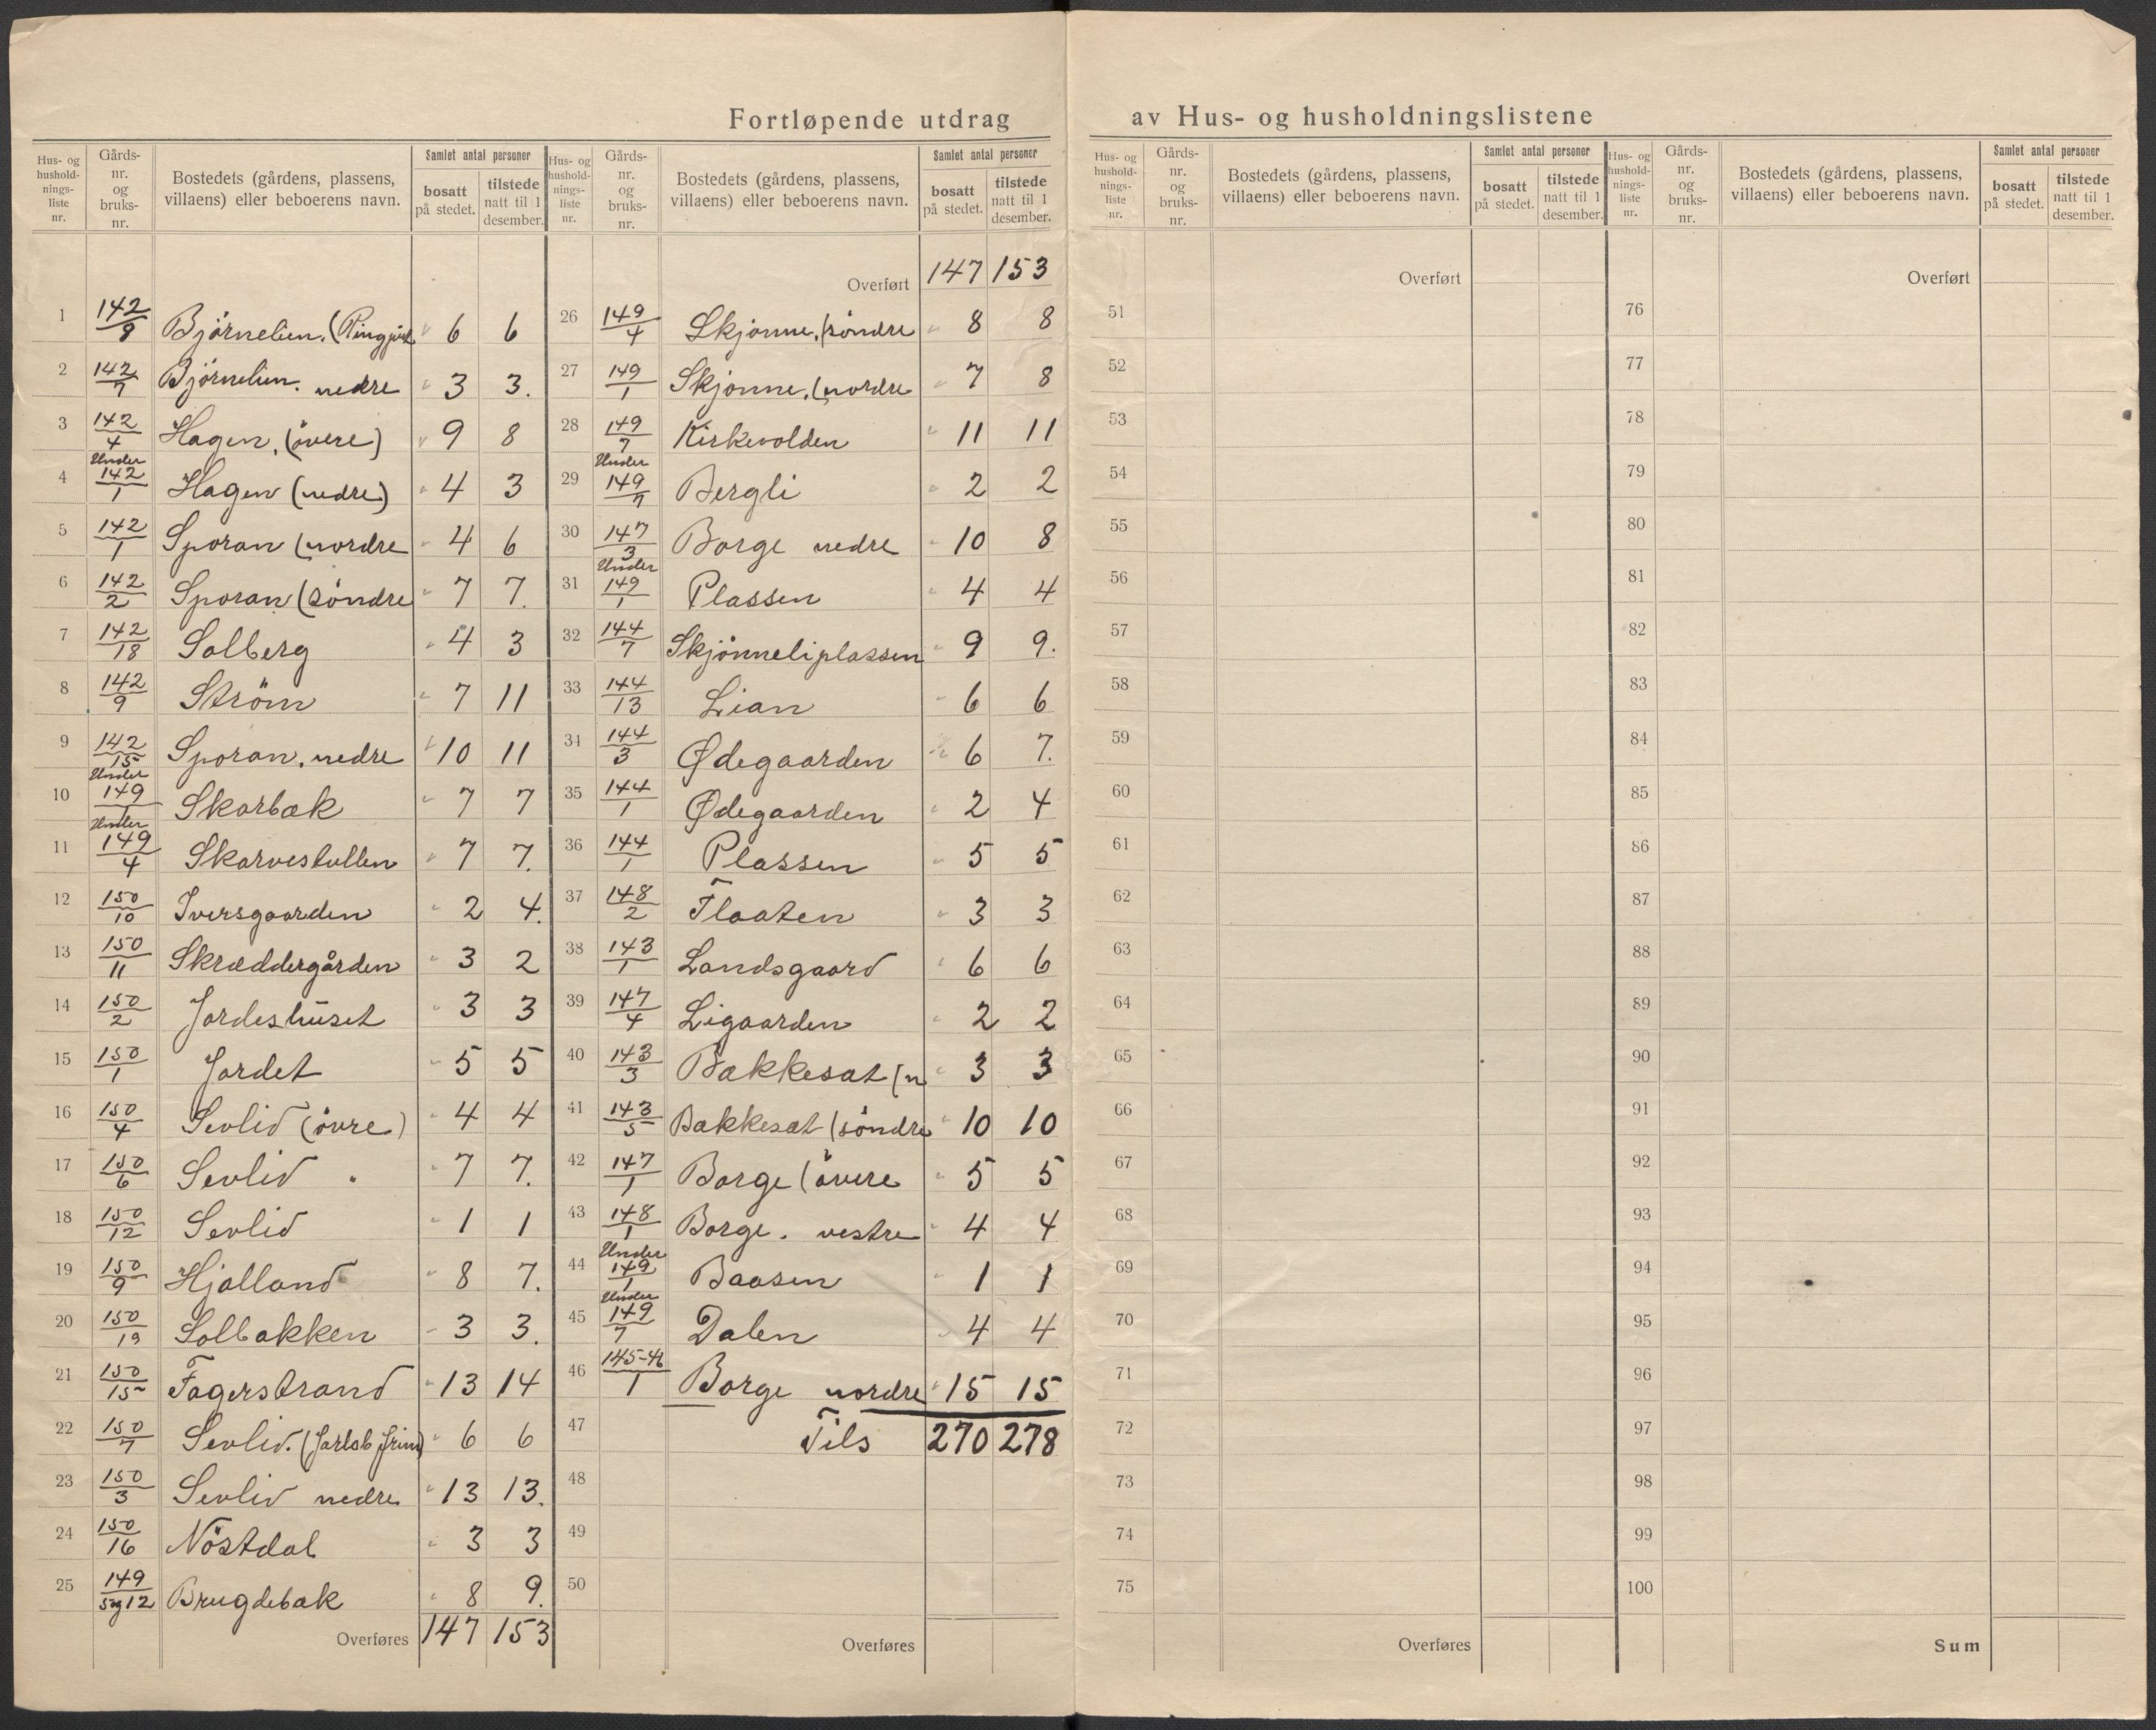 Fortløpende utdrag av Hus- og husholdningslistene
Hus- og hushold-nings-liste nr. Gårds-nr. og bruks-nr. Bostedets (gårdens, plassens, villaens) eller beboerens navn. Samlet antal personer bosatt på stedet. tilstede natt til 1 desember.
1 142/8 Björnelien. 6 6
2 142/7 Björnelien. nedre 3 3.
3 142/4 Hagen, (övere) 9 8
4 Under 142/1 Hagen (nedre) 4 3
5 142/1 Sporan (nordre 4 6
6 142/2 Sporan (söndre 7 7.
7 142/18 Solberg 4 3
8 142/9 Ström 7 11
9 142/15 Sporan, nedre 10 11
10 Under 149/1 Skarbæk 7 7
11 Under 149/4 Skarvestullen 7 7.
12 150/10 Iversgaarden 2 4.
13 150/11 Skræddergården 3 2
14 150/2 Jordeshuset 3 3
15 150/1 Jordet 5 5
16 150/4 Sevlid (övre) 4 4
17 150/6 Sevlid " 7 7.
18 150/12 Sevlid 1 1
19 150/9 Hjalland 8 7.
20 150/19 Solbakken 3 3.
21 150/15 Fagerstrand 13 14
22 150/7 Sevlid. 6 6
23 150/3 Sevlid nedre 13 13.
24 150/16 Nöstdal 3 3
25 149/5 og 12 Brugdebak 8 9.
Overføres 147 153
Hus- og hushold-nings-liste nr. Gårds-nr. og bruks-nr. Bostedets (gårdens, plassens, villaens) eller beboerens navn. Samlet antal personer bosatt på stedet. tilstede natt til 1 desember.
Overført 147 153
26 149/4 Skjönne, (söndre 8 8
27 149/1 Skjönne, (nordre 7 8
28 149/7 Kirkevolden 11 11
29 Under 149/7 Bergli 2 2
30 147/3 Borge nedre 10 8
31 Under 149/1 Plassen 4 4
32 144/7 Skjönneliplassen 9 9.
33 144/13 Lian 6 6
34 144/3 Ødegaarden 6 7.
35 144/1 Ødegaarden 2 4
36 144/1 Plassen 5 5
37 148/2 Flaaten 3 3
38 143/1 Landsgaard 6 6
39 147/4 Ligaarden 2 2
40 143/3 Bakkesat (n 3 3
41 143/5 Bakkesat (söndre 10 10
42 147/1 Borge (övere 5 5
43 148/1 Borge. vestre 4 4
44 Under 149/1 Baasen 1 1
45 Under 149/7 Dalen 4 4
46 145-46/1 Borge nordre 15 15
47 Tils 270 278
48
49
50
Overføres
Hus- og hushold-nings-liste nr. Gårds-nr. og bruks-nr. Bostedets (gårdens, plassens, villaens) eller beboerens navn. Samlet antal personer bosatt på stedet. tilstede natt til 1 desember.
Overført
51
52
53
54
55
56
57
58
59
60
61
62
63
64
65
66
67
68
69
70
71
72
73
74
75
Overføres
Hus- og hushold-nings-liste nr. Gårds-nr. og bruks-nr. Bostedets (gårdens, plassens, villaens) eller beboerens navn. Samlet antal personer bosatt på stedet. tilstede natt til 1 desember.
Overført
76
77
78
79
80
81
82
83
84
85
86
87
88
89
90
91
92
93
94
95
96
97
98
99
100
Sum